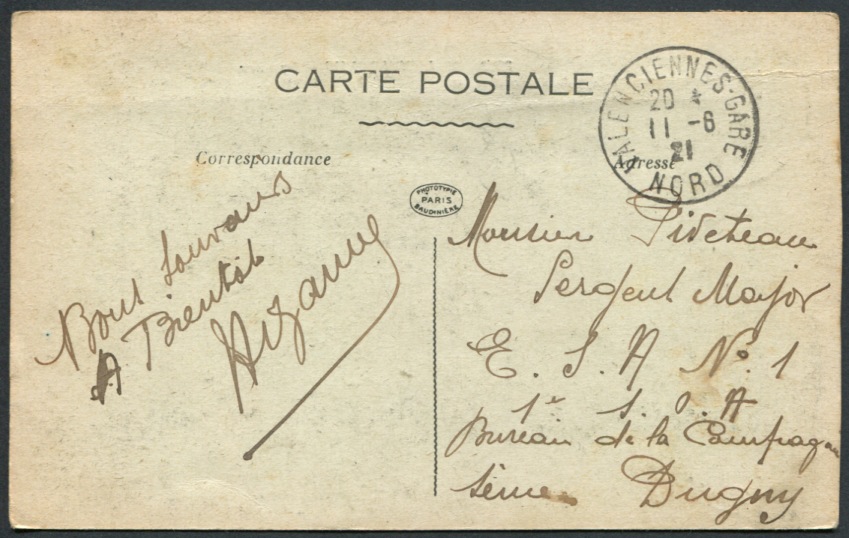 CARTE POSTALE
VALENCIENNES-GARE
20 *
11 -6
21
NORD
Correspondance
Adresse
PHOTOTYPIE
PARIS
BAUDINIÈRE
Bons Souvenirs
A Bientôt
Monsieur Piveteau
Sergent Major
E. S. A N° 1
1e S. O. A
Bureau de la Compagnie
Seine Dugny